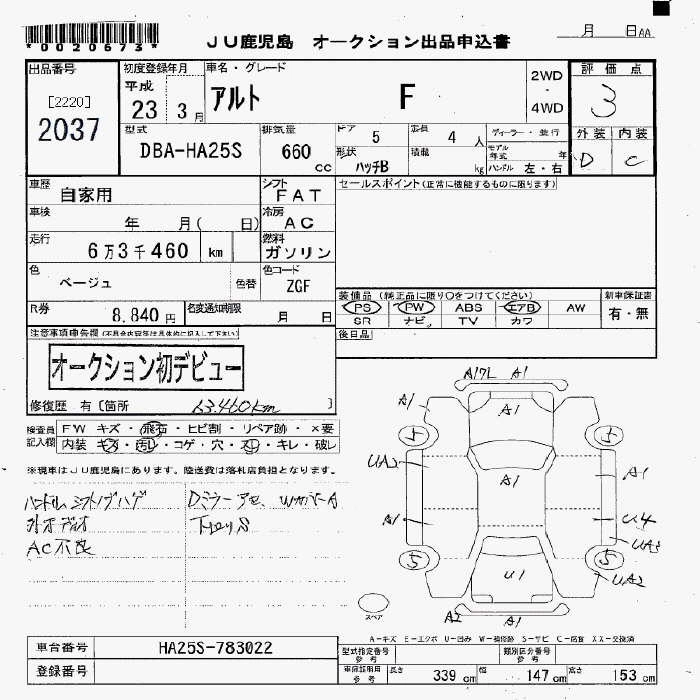 *0020673*
JU鹿児島 オークション出品申込書
月 日AA
出品番号
[2220]
2037
初度登録年月
平成
23 3月
車名・グレード
アルト F
2WD
・
4WD
評価点
3
型式
DBA-HA25S
排気量
660
cc
ドア 5
定員 4 人
形状 ハッチB
積載 kg
ディーラー・並行
モデル年式 年
ハンドル 左・右
外装 内装
D C
車歴
自家用
シフト
FAT
セールスポイント(正常に機能するものに限ります)
車検
年 月( 日)
冷房
AC
走行
6万3千460 km
燃料
ガソリン
色
ベージュ
色替
色コード
ZGF
R券
8,840円
名変通知期限
月 日
装備品(純正品に限り○をつけてください)
PS PW ABS エアB AW
SR ナビ TV カワ
新車保証書
有・無
後日品
注意事項申告欄(不具合内容等は具体的に記入して下さい)
オークション初デビュー
修復歴 有〔箇所 〕
63,460km
検査員記入欄
FW キズ・飛石・ヒビ割・リペア跡・×要
内装 キズ・汚レ・コゲ・穴・スレ・キレ・破レ
※現車はJU鹿児島にあります。陸送費は落札店負担となります。
ハンドル シフトノブハゲ
AC不良
A1
A1
A1
5
5
UA2
A1
A1
A1
U4
UA3
5
5
U1
UA2
A2
A1
スペア
A-キズ E-エクボ U-凹み W-補修跡 S-サビ C-腐食 XX-交換済
車台番号
HA25S-783022
登録番号
型式指定番号
参考
類別区分番号
参考
車検証明用
参考
長さ 339 cm
幅 147 cm
高さ 153 cm